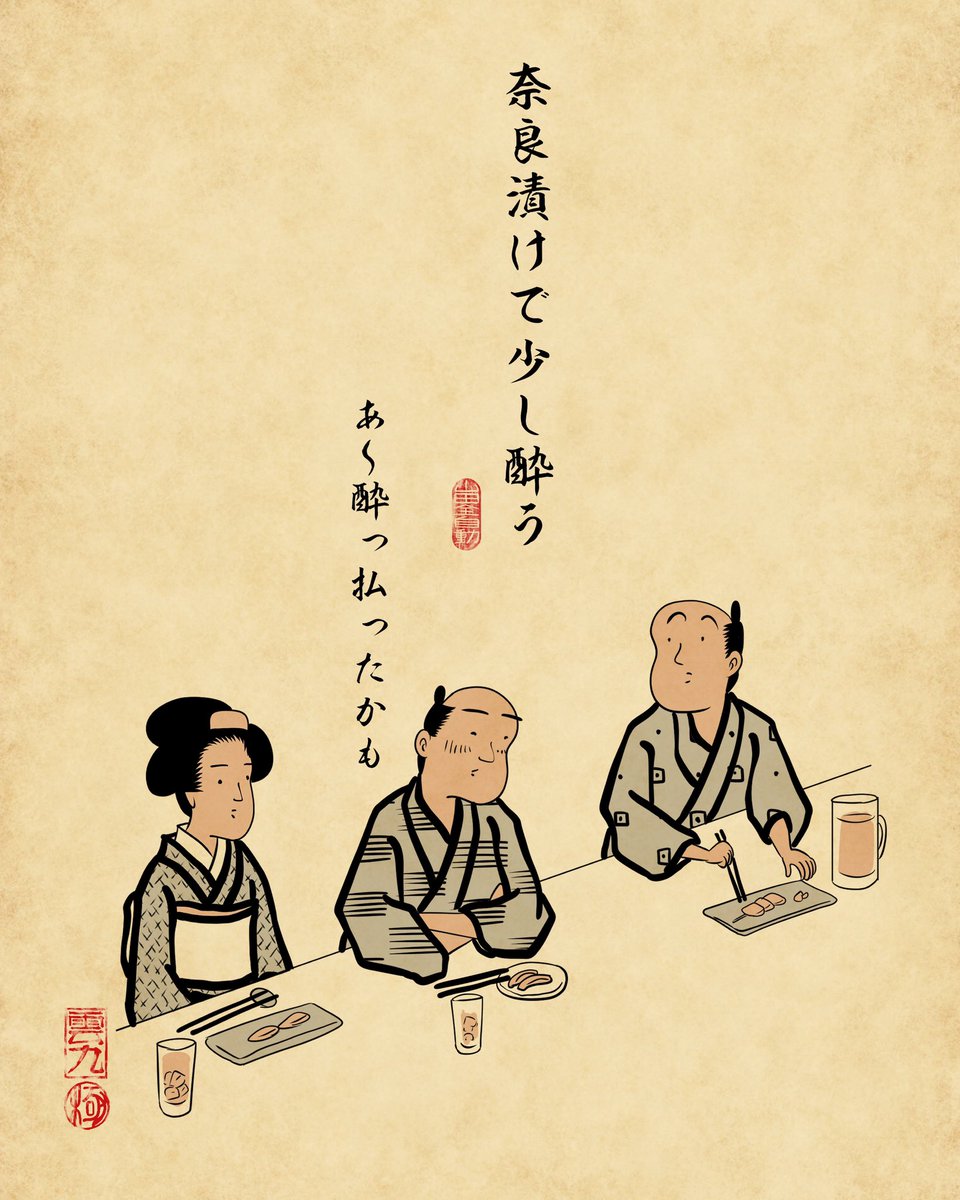 奈良漬けで少し酔う
あ〜酔っ払ったかも